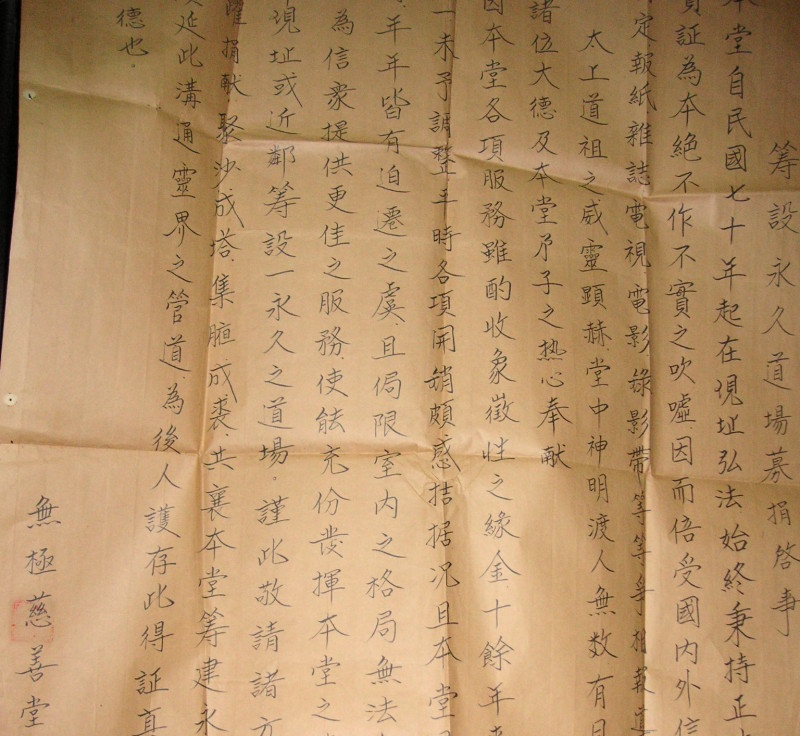 籌設永久道場募捐啓事
本堂自民國七十年起在現址弘法始終秉持正
証為本絕不作不實之吹噓因而倍受國內外信
定.報紙雜誌電視.電影.錄影帶等等爭相報
太上道祖之威靈顯赫.堂中神明渡人無数有目
諸位大德及本堂弟子之热心奉献
因本堂各項服務雖酌收象徵性之緣金十餘年
一未予調整.平時各項開銷頗感拮据況且本堂
年年皆有迫遷之虞.且侷限室內之格局無法
為信衆提供更佳之服務.使能充份發揮本堂之
現址或近鄰籌設一永久之道場。謹此敬請諸方
躍捐献.聚沙成塔.集腋成裘.共襄本堂籌建永
延此溝通靈界之管道.為後人護存此得証真
德也.
無極慈善堂